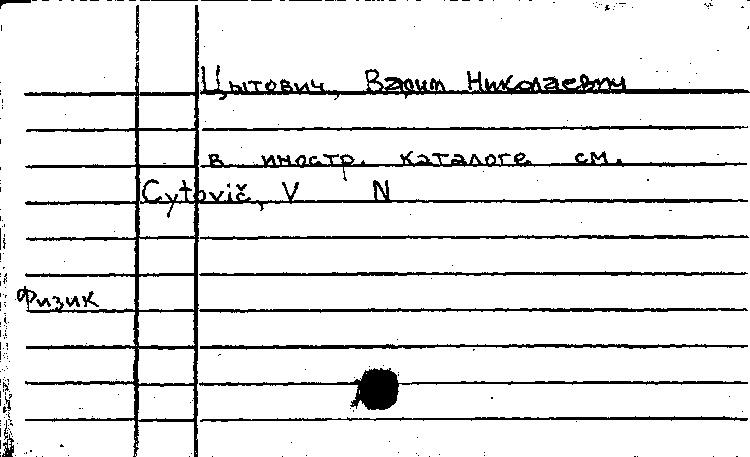 Цытович, Вадим Николаевич
в иностр. каталоге см.
Cytovič, V N
Физик